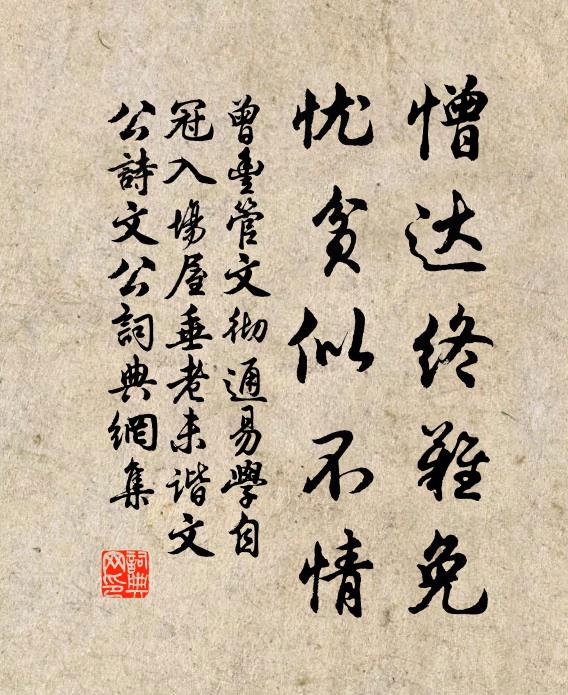 憎达终难免
忧贫似不情
曾豊管文彻通易學自
冠入場屋垂老未谐文
公詩文公詞典網集
詞典网印